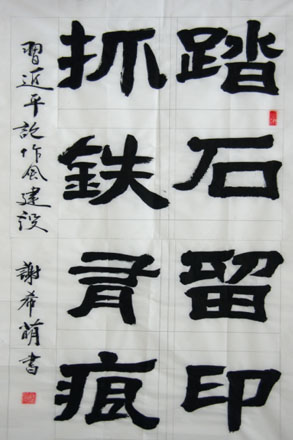 踏石留印
抓鉄有痕
習近平記作風建設
謝希萠書